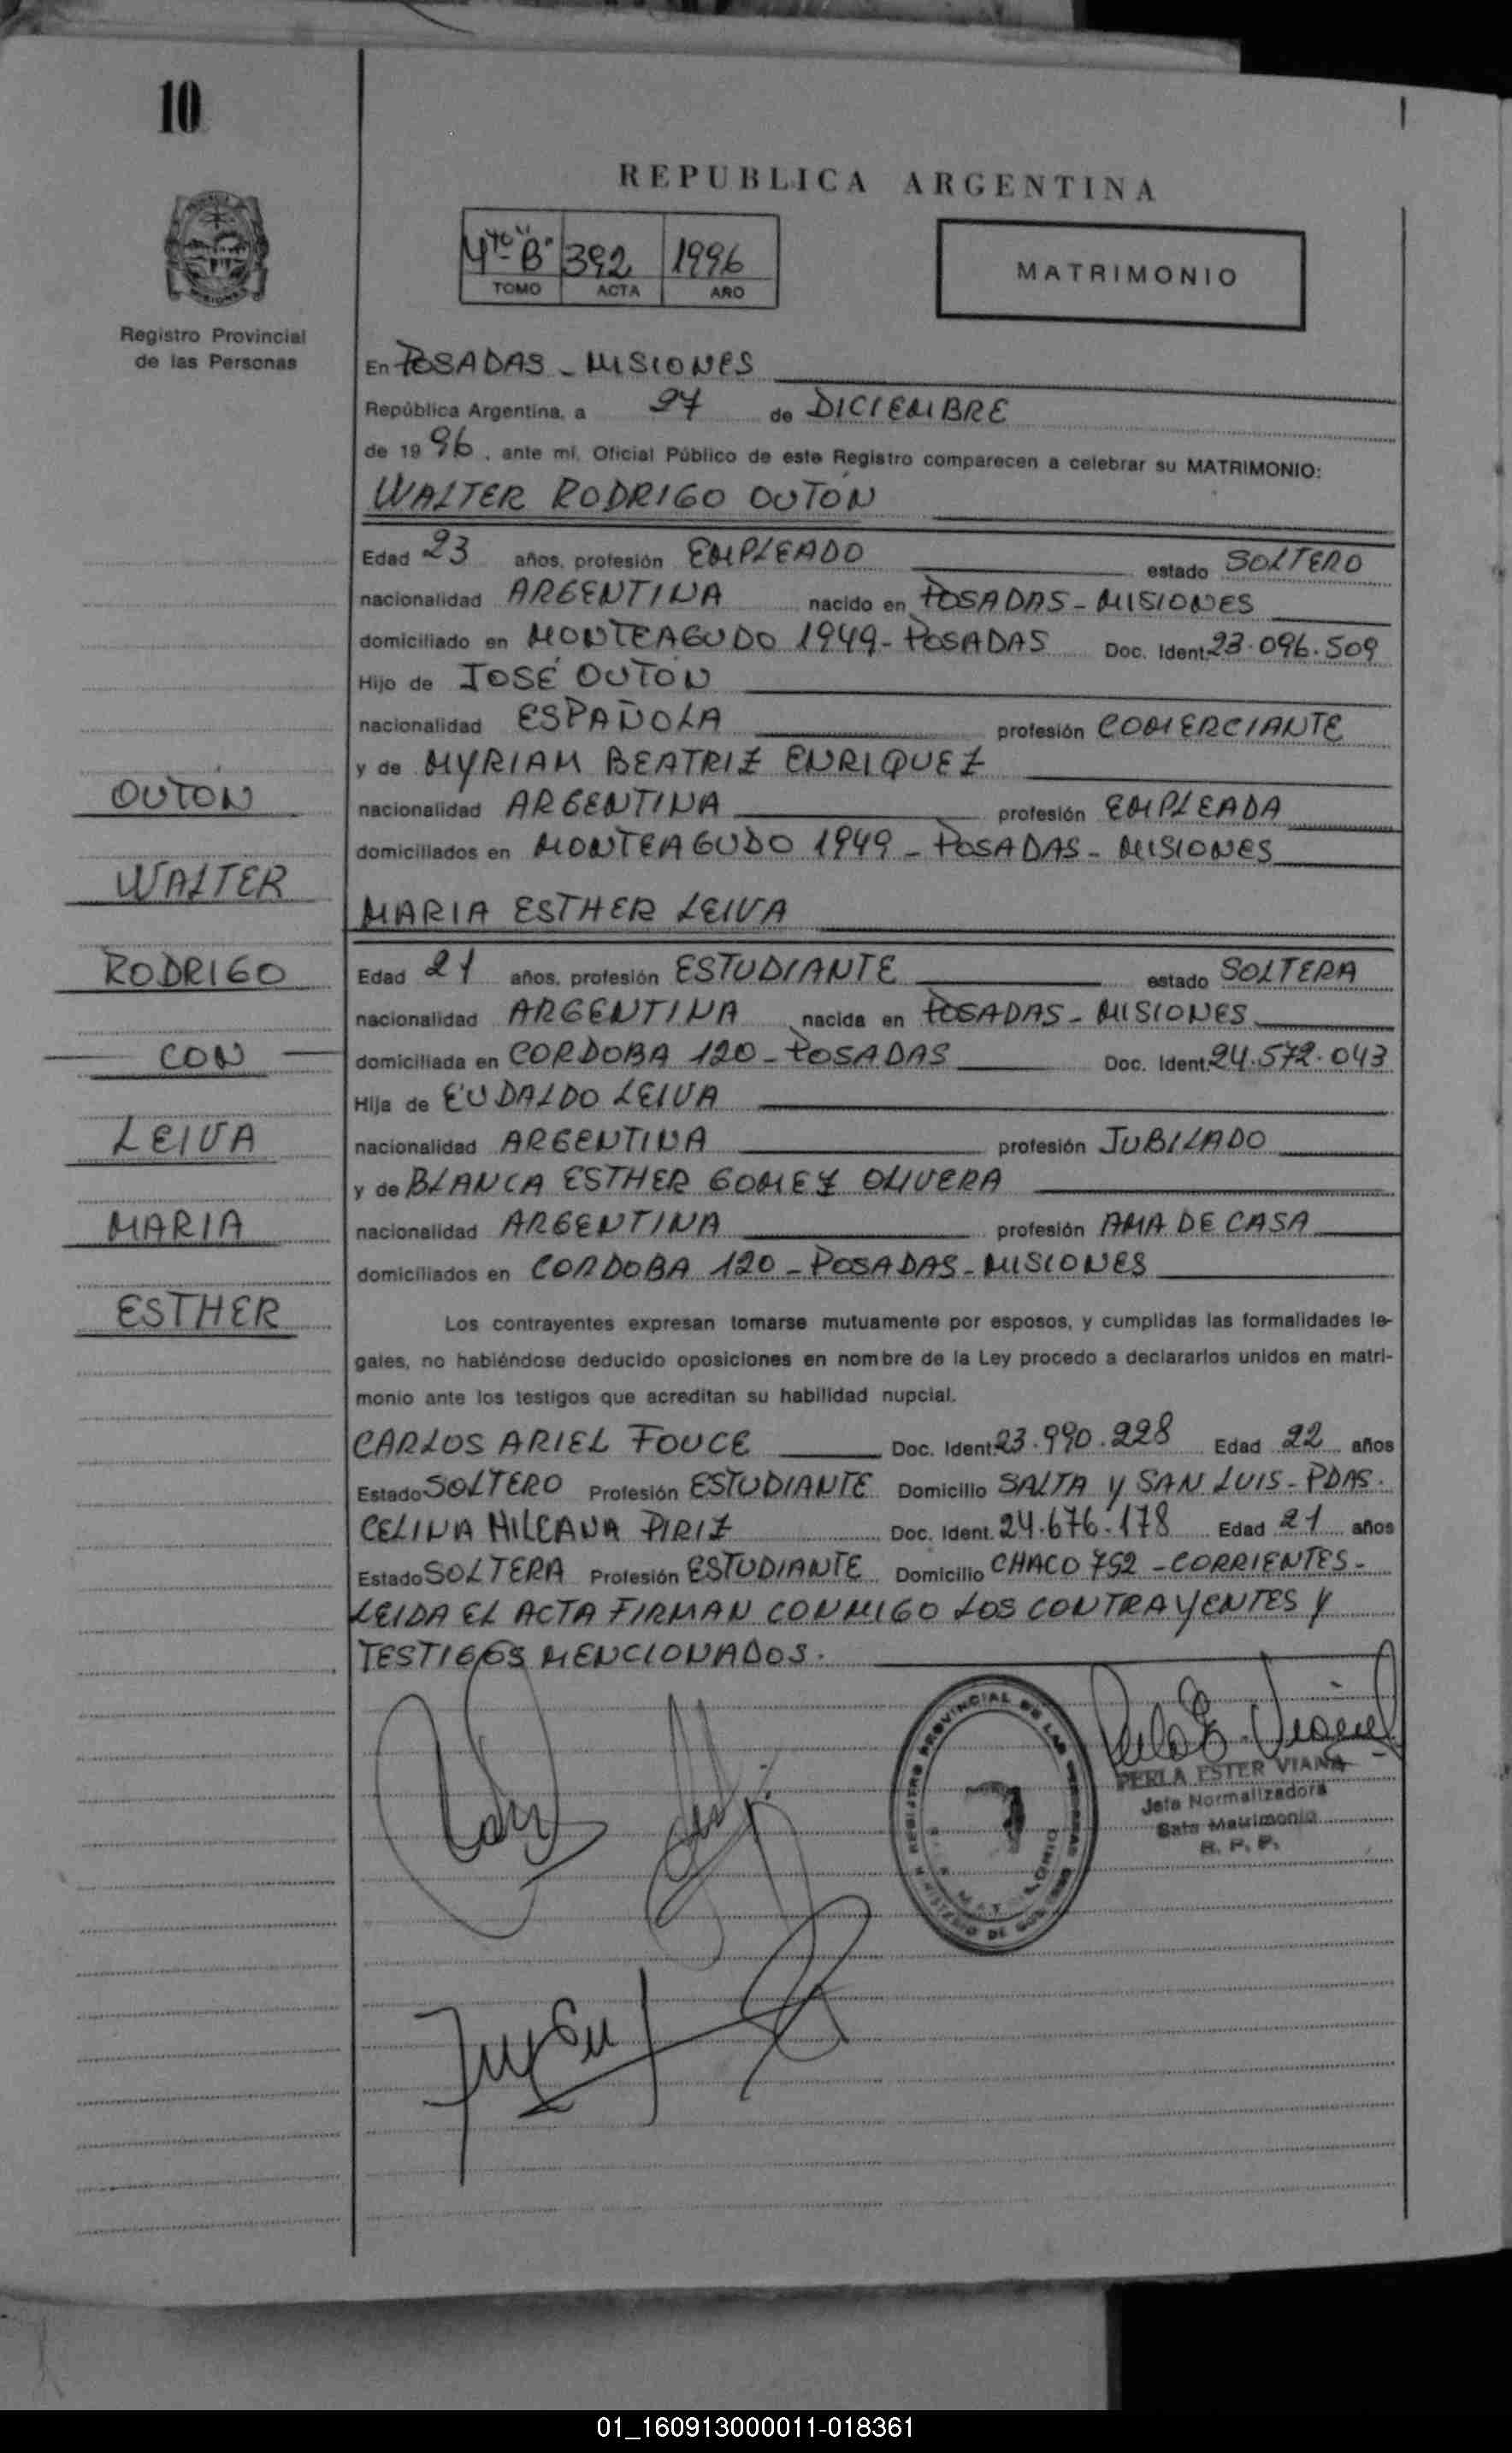 10
REPUBLICA ARGENTINA
4to "B" 392 1996
TOMO ACTA AÑO
MATRIMONIO
Registro Provincial
de las Personas
En POSADAS - MISIONES
República Argentina, a 27 de DICIEMBRE
de 19 96, ante mi, Oficial Público de este Registro comparecen a celebrar su MATRIMONIO:
WALTER RODRIGO OUTÓN
Edad 23 años, profesión EMPLEADO estado SOLTERO
nacionalidad ARGENTINA nacido en POSADAS - MISIONES
domiciliado en MONTEAGUDO 1949 - POSADAS Doc. Ident. 23.096.509
Hijo de JOSÉ OUTÓN
nacionalidad ESPAÑOLA profesión COMERCIANTE
y de MYRIAM BEATRIZ ENRIQUEZ
nacionalidad ARGENTINA profesión EMPLEADA
domiciliados en MONTEAGUDO 1949 - POSADAS - MISIONES
MARIA ESTHER LEIVA
Edad 21 años, profesión ESTUDIANTE estado SOLTERA
nacionalidad ARGENTINA nacida en POSADAS - MISIONES
domiciliada en CORDOBA 120 - POSADAS Doc. Ident. 24.572.043
Hija de EUDALDO LEIVA
nacionalidad ARGENTINA profesión JUBILADO
y de BLANCA ESTHER GOMEZ OLIVERA
nacionalidad ARGENTINA profesión AMA DE CASA
domiciliados en CORDOBA 120 - POSADAS - MISIONES
OUTÓN
WALTER
RODRIGO
CON
LEIVA
MARIA
ESTHER
Los contrayentes expresan tomarse mutuamente por esposos, y cumplidas las formalidades le-
gales, no habiéndose deducido oposiciones en nombre de la Ley procedo a declararlos unidos en matri-
monio ante los testigos que acreditan su habilidad nupcial.
CARLOS ARIEL FOUCE Doc. Ident. 23.990.228 Edad 22 años
Estado SOLTERO Profesión ESTUDIANTE Domicilio SALTA Y SAN LUIS - PDAS.
CELINA MILCANA PIRIZ Doc. Ident. 24.676.178 Edad 21 años
Estado SOLTERA Profesión ESTUDIANTE Domicilio CHACO 752 - CORRIENTES -
LEIDA EL ACTA FIRMAN CONMIGO LOS CONTRAYENTES Y
TESTIGOS MENCIONADOS.
REGISTRO PROVINCIAL DE LAS PERSONAS
PERLA ESTER VIANA
Jefa Normalizadora
Matrimonio
R. P. P.
01_160913000011-018361